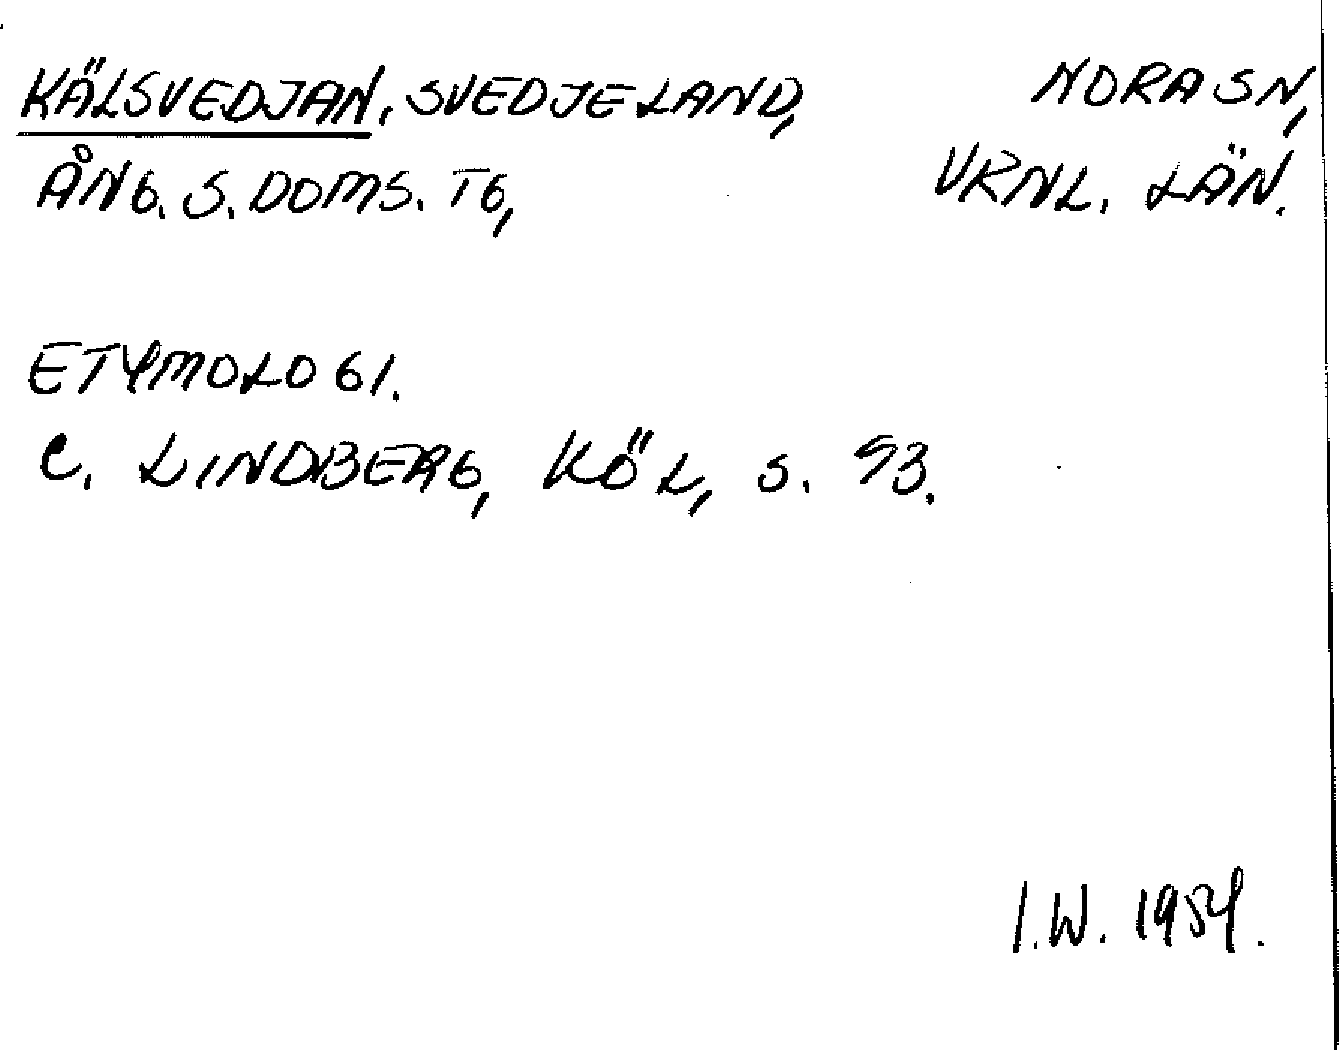 KÄLSVEDJAN, SVEDJELAND, NORA SN,
ÅNG. S. DOMS. TG, VRNL. LÄN.
ETYMOLOGI.
C. LINDBERG, KÖL, S. 93.
I.W. 1954.